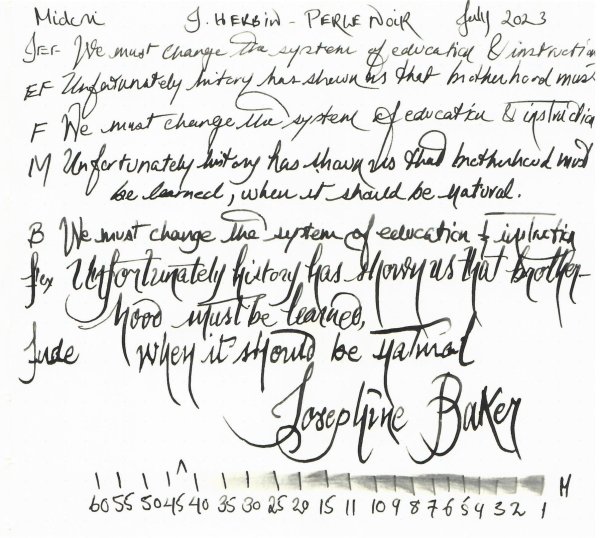 Midori J. HERBIN - PERLE NOIR July 2023
EEF We must change the system of education & instruction
EF Unfortunately history has shown us that brotherhood must
F We must change the system of education & instruction
M Unfortunately history has shown us that brotherhood must
be learned, when it should be natural.
B We must change the system of education & instruction
flex Unfortunately history has shown us that brother-
hood must be learned,
fude when it should be natural
Josephine Baker
60 55 50 45 40 35 30 25 20 15 11 10 9 8 7 6 5 4 3 2 1 M